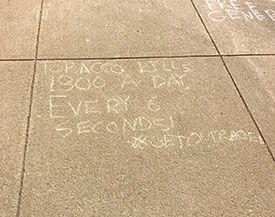 TOBACCO KILLS
1300 A DAY,
EVERY 6
SECONDS!
#GETOUTRAGED